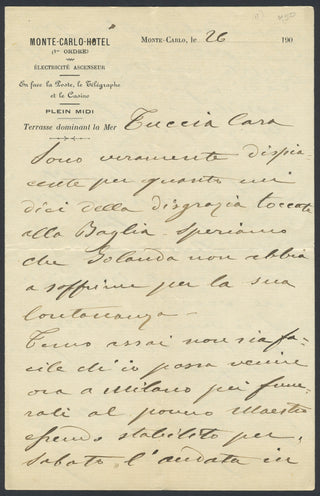 MONTE-CARLO-HÔTEL
(1er ORDRE)
ÉLECTRICITÉ ASCENSEUR
En face la Poste, le Télégraphe
et le Casino
PLEIN MIDI
Terrasse dominant la Mer
MONTE-CARLO, le 26 190
Tuccia Cara
Sono veramente dispia-
cente per quanto mi
dici della disgrazia toccata
alla Baglia. Speriamo
che Iolanda non abbia
a soffrirne per la sua
lontananza.
Temo assai non sia fa-
cile ch'io possa venire
ora a Milano pei fune-
rali al povero Maestro
essendo stabilito per
Sabato l'andata in